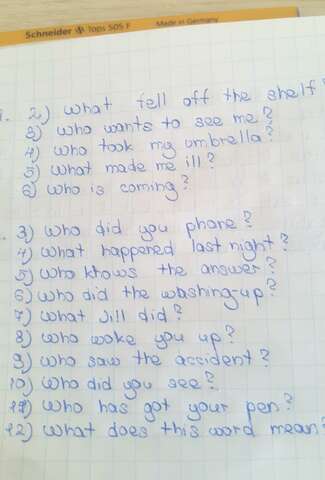 Schneider Tops 505 F Made in Germany
2) What fell off the shelf?
3) Who wants to see me?
4) Who took my umbrella?
5) What made me ill?
6) Who is coming?
3) Who did you phone?
4) What happened last night?
5) Who knows the answer?
6) Who did the washing-up?
7) What Jill did?
8) Who woke you up?
9) Who saw the accident?
10) Who did you see?
11) Who has got your pen?
12) What does this word mean?